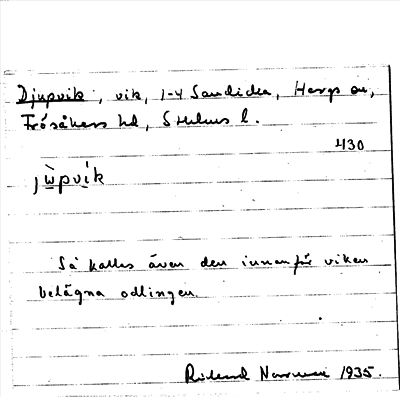 Djupvik, vik, 1-4 Sandika, Hargs sn,
Frösåkers hd, Sthlms l.
430
jùpvik
Så kallas även den innanför viken
belägna odlingen.
Rickard 1935.